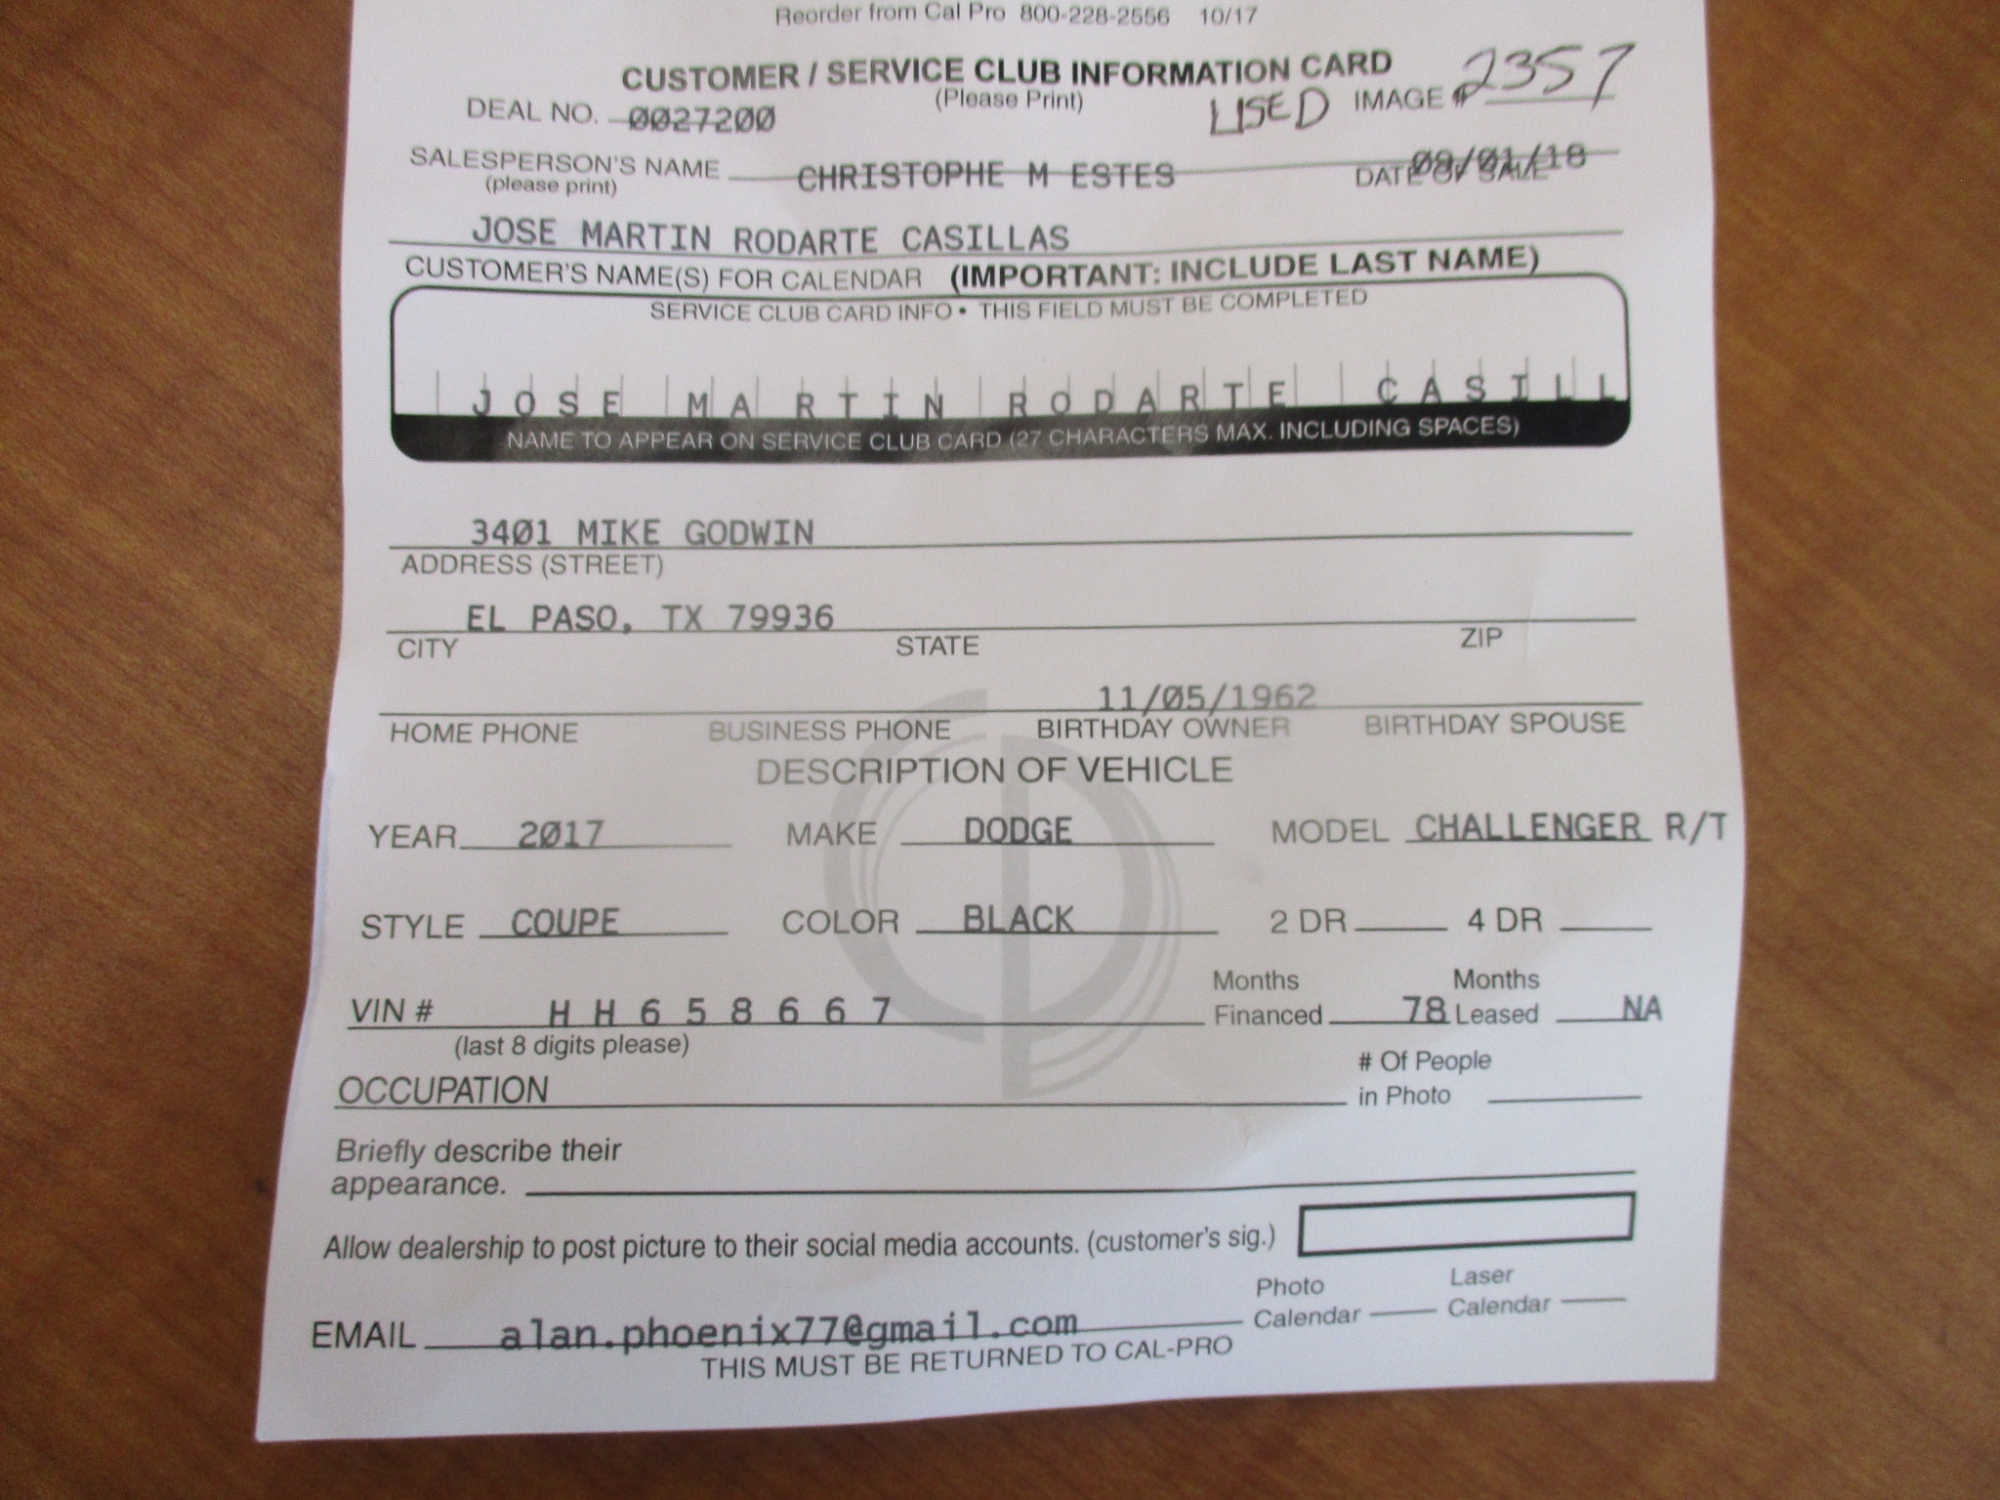 Reorder from Cal Pro 800-228-2556 10/17
CUSTOMER / SERVICE CLUB INFORMATION CARD
(Please Print)
DEAL NO. 0027200 USED IMAGE # 2357
SALESPERSON'S NAME CHRISTOPHE M ESTES DATE OF SALE 09/01/18
(please print)
JOSE MARTIN RODARTE CASILLAS
CUSTOMER'S NAME(S) FOR CALENDAR (IMPORTANT: INCLUDE LAST NAME)
SERVICE CLUB CARD INFO • THIS FIELD MUST BE COMPLETED
JOSE MARTIN RODARTE CASILL
NAME TO APPEAR ON SERVICE CLUB CARD (27 CHARACTERS MAX. INCLUDING SPACES)
3401 MIKE GODWIN
ADDRESS (STREET)
EL PASO, TX 79936
CITY STATE ZIP
11/05/1962
HOME PHONE BUSINESS PHONE BIRTHDAY OWNER BIRTHDAY SPOUSE
DESCRIPTION OF VEHICLE
YEAR 2017 MAKE DODGE MODEL CHALLENGER R/T
STYLE COUPE COLOR BLACK 2 DR 4 DR
VIN # HH658667 Months Financed 78 Months Leased NA
(last 8 digits please)
OCCUPATION # Of People in Photo
Briefly describe their
appearance.
Allow dealership to post picture to their social media accounts. (customer's sig.)
EMAIL alan.phoenix77@gmail.com Photo Calendar Laser Calendar
THIS MUST BE RETURNED TO CAL-PRO